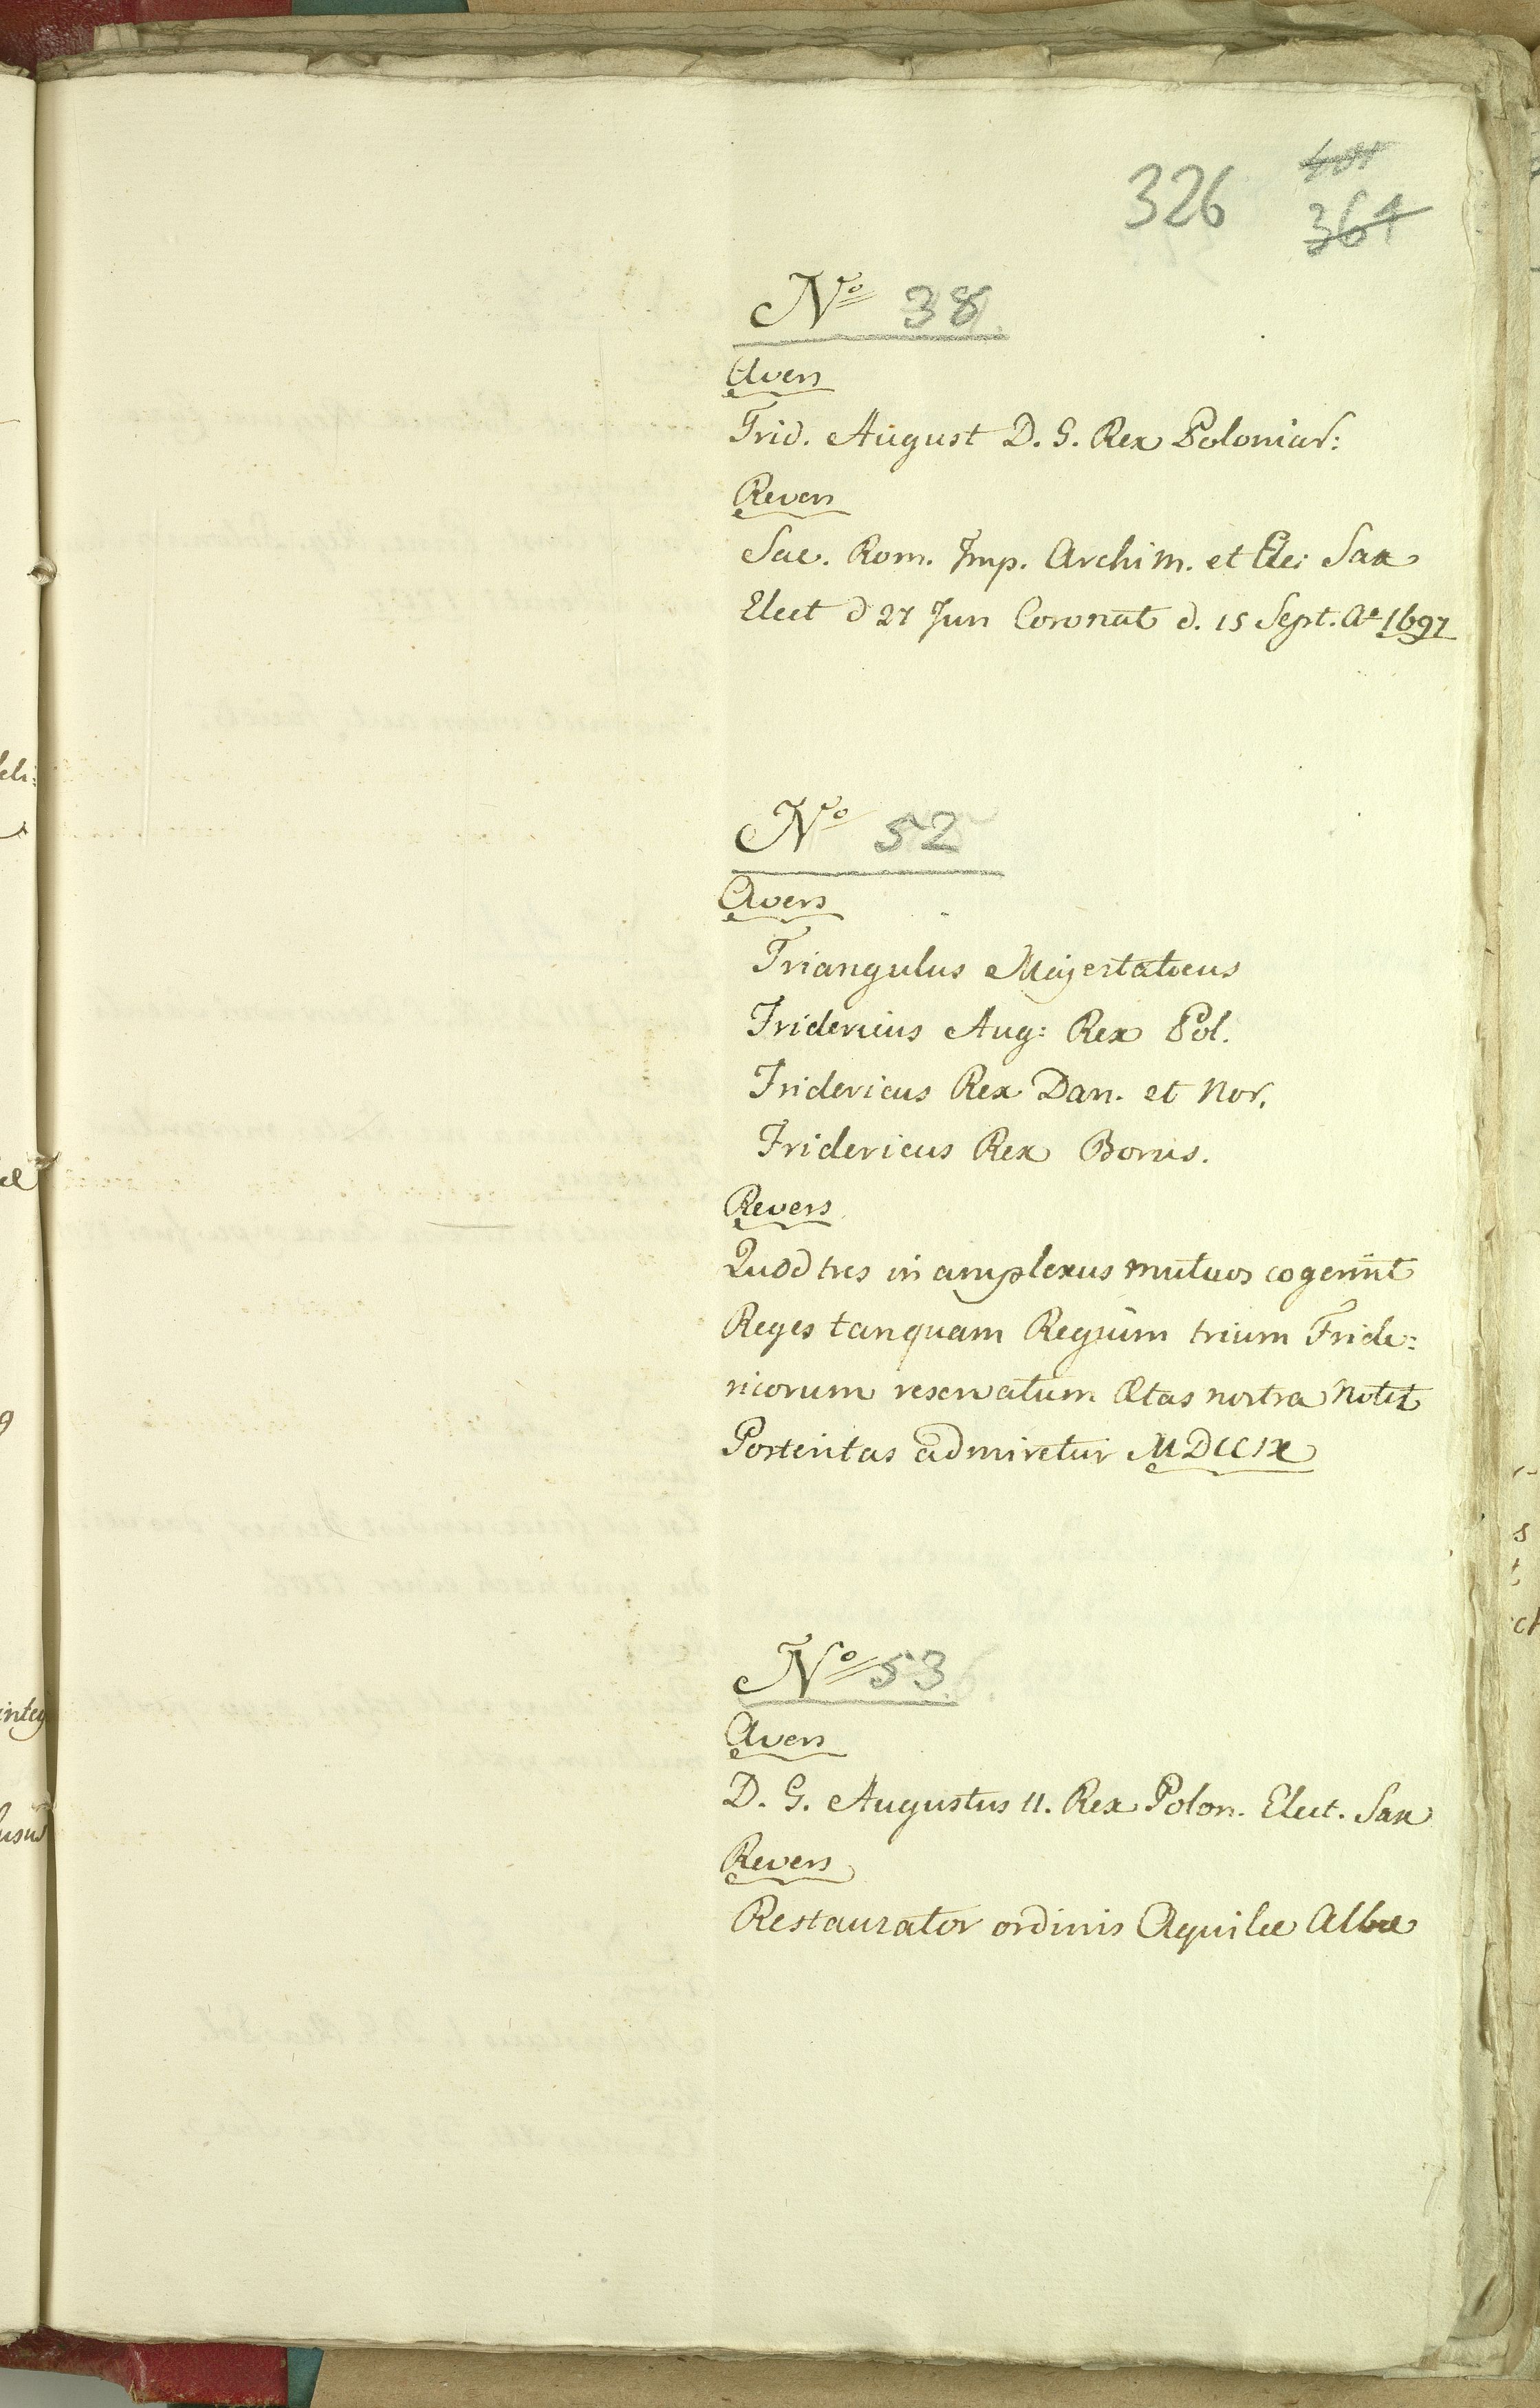 326
364
No 38
Avers
Frid. August D. G. Rex Poloniar:
Revers
Sac. Rom. Imp. Archim. et Ele: Sax
Elect d 27 Jun Coronat d. 15 Sept. Ao 1697
No 52
Avers
Triangulus Majestaticus
Fridericus Aug: Rex Pol.
Fridericus Rex Dan. et Nor.
Fridericus Rex Borus.
Revers
Quod tres in amplexus mutuos cogerint
Reges tanquam Regium trium Fride:
ricorum reservatum Ætas nostra
Posteritas admiretur MDCCIX
No 53
Avers
D. G. Augustus II. Rex Polon. Elect. Sax
Revers
Restaurator ordinis Aquilæ Albæ